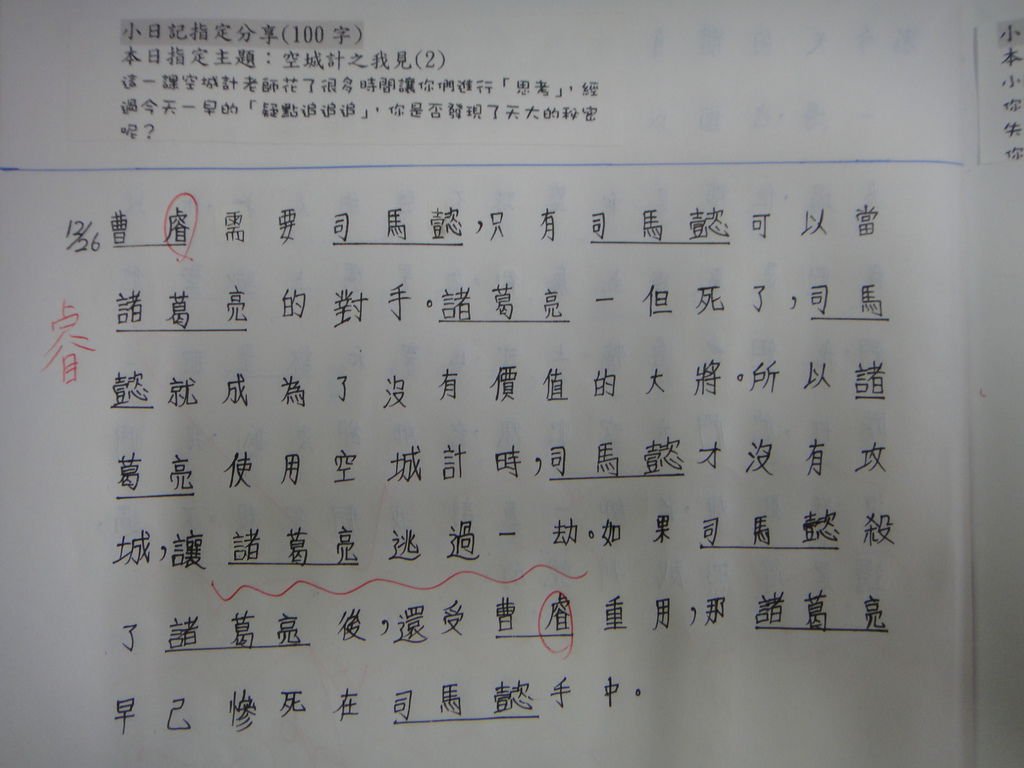 小日記指定分享(100字)
本日指定主題：空城計之我見(2)
這一課空城計老師花了很多時間讓你們進行「思考」，經
過今天一早的「疑點追追追」，你是否發現了天大的秘密
呢？
12/26 曹睿需要司馬懿，只有司馬懿可以當
諸葛亮的對手。諸葛亮一但死了，司馬
睿
懿就成為了沒有價值的大將。所以諸
葛亮使用空城計時，司馬懿才沒有攻
城，讓諸葛亮逃過一劫。如果司馬懿殺
了諸葛亮後，還受曹睿重用，那諸葛亮
早已慘死在司馬懿手中。
小
本
小
你
失
你